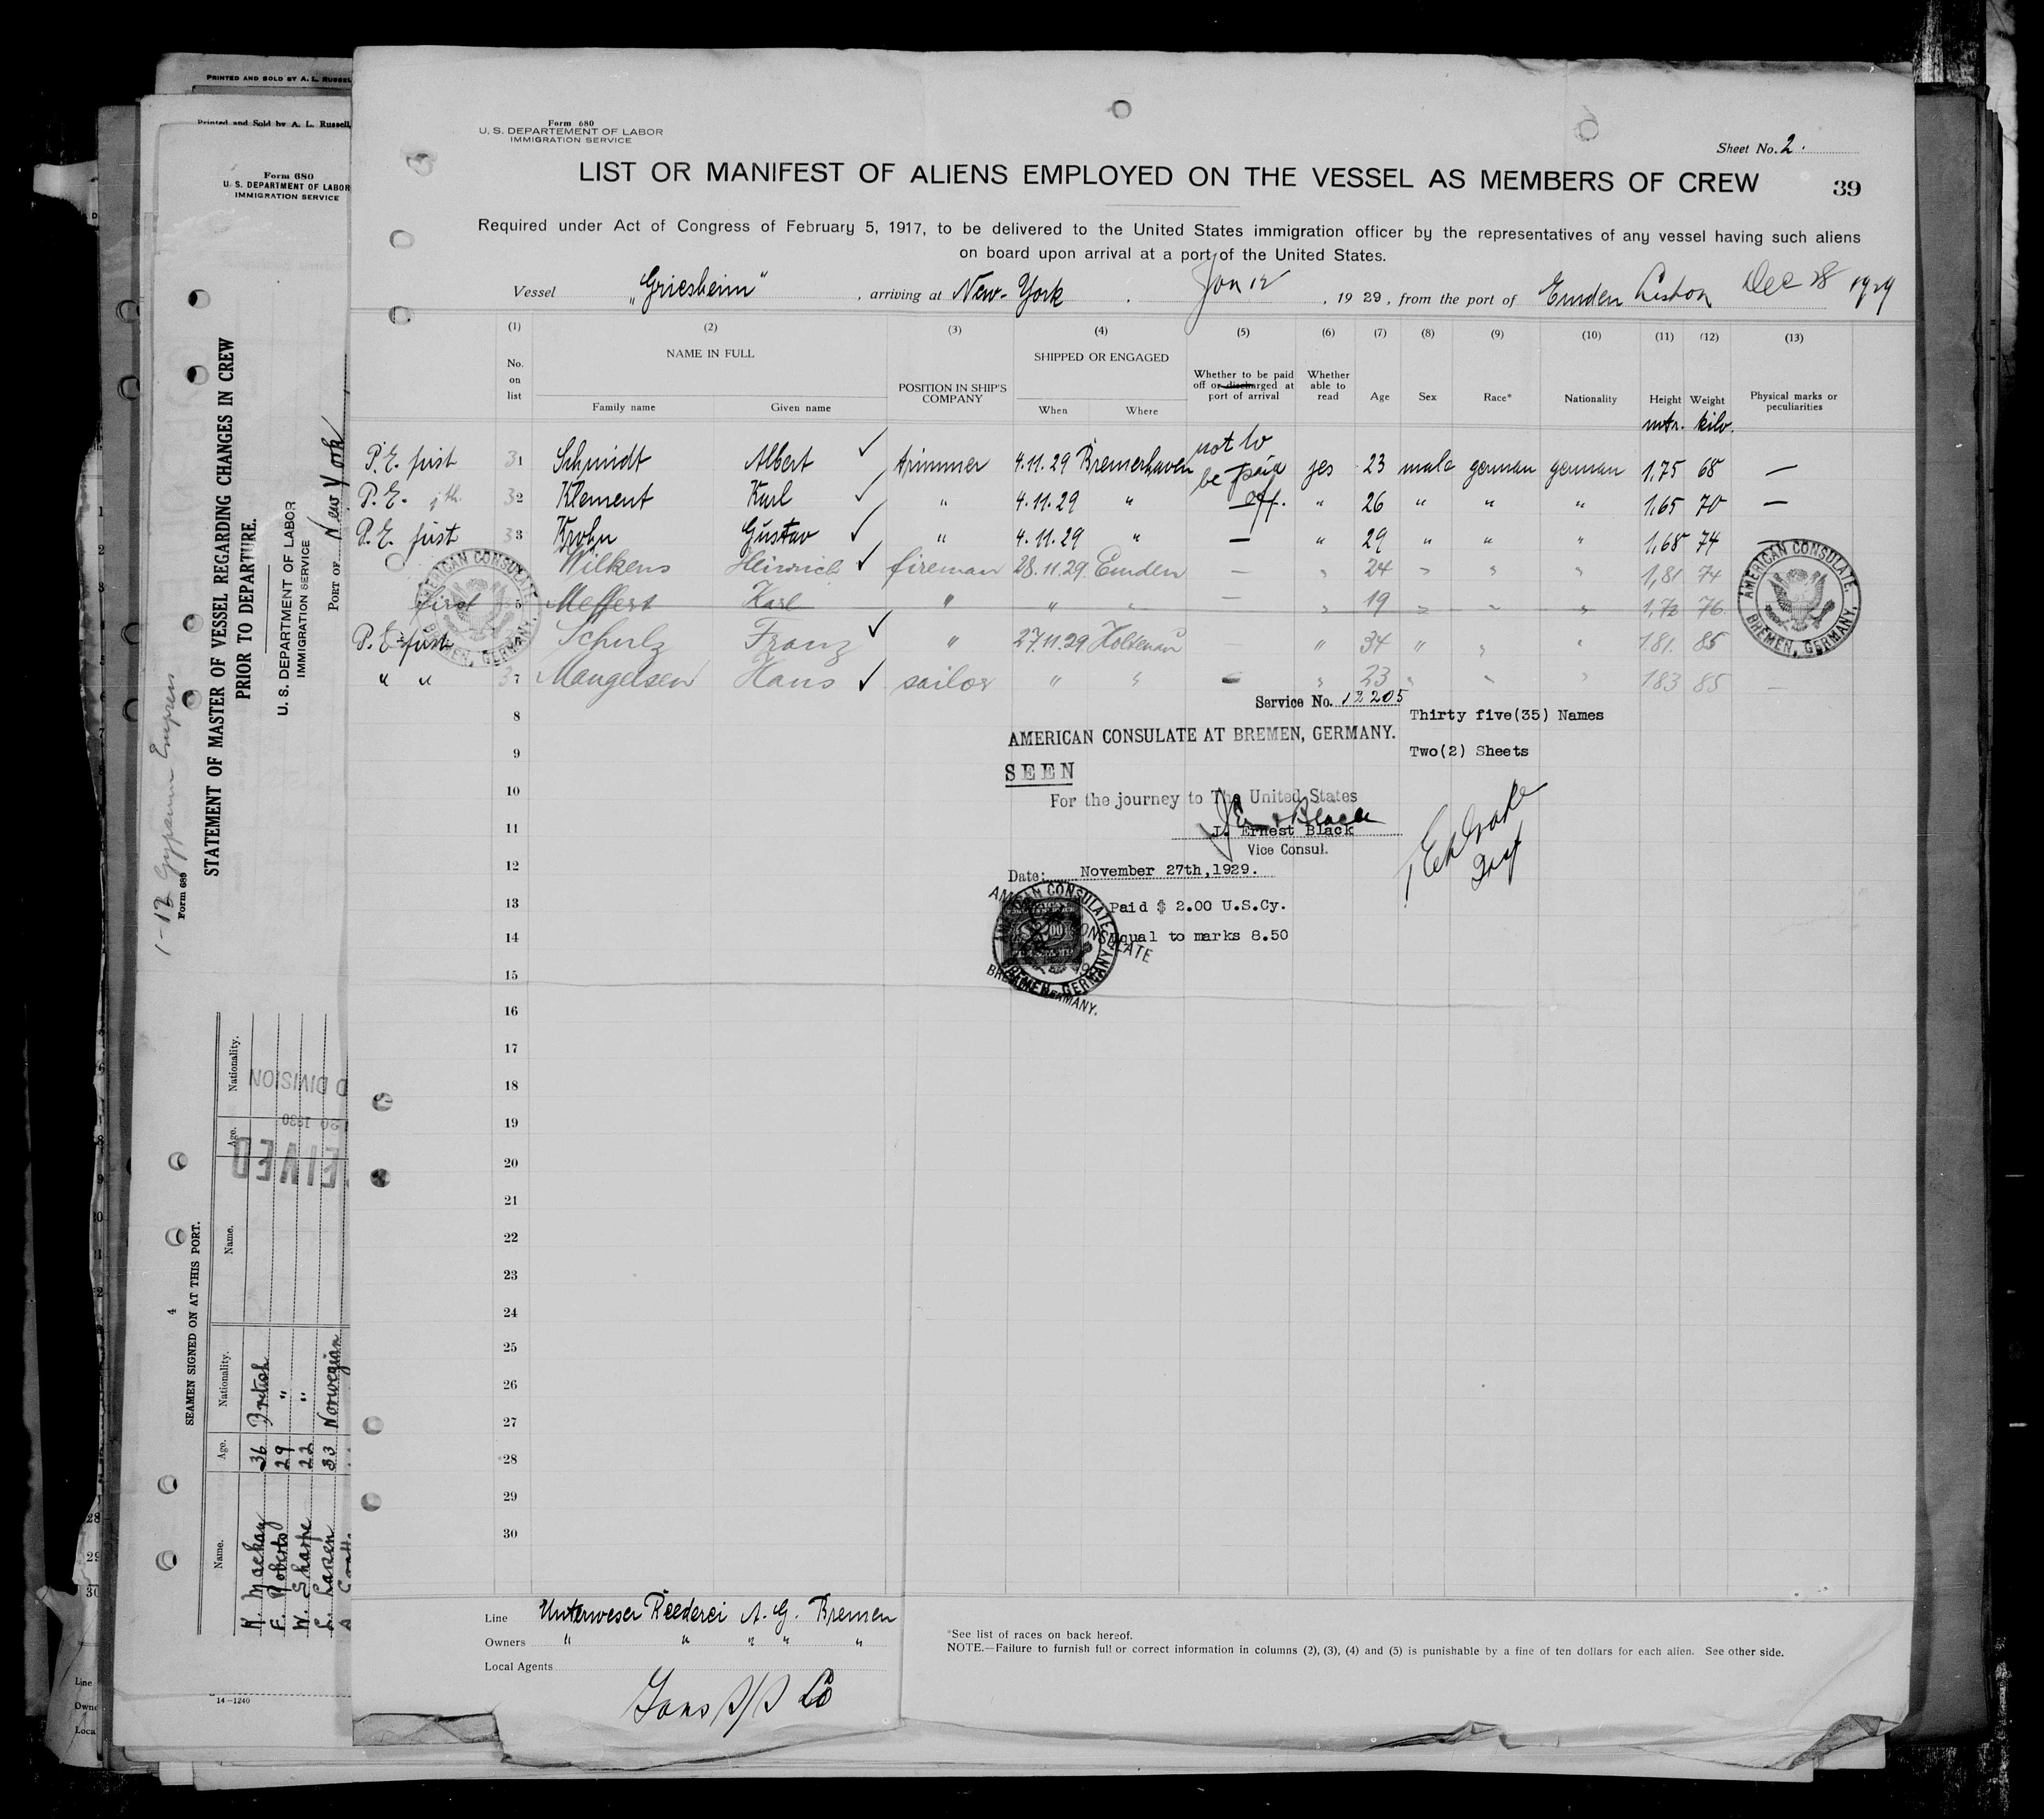 PRINTED AND SOLD BY A. L. RUSSEL
Printed and Sold by A. L. Russell,
Form 680
U. S. DEPARTMENT OF LABOR
IMMIGRATION SERVICE
1-12 Gypsum Empress
Form 689
STATEMENT OF MASTER OF VESSEL REGARDING CHANGES IN CREW
PRIOR TO DEPARTURE.
U. S. DEPARTMENT OF LABOR
IMMIGRATION SERVICE
PORT OF New York
4
SEAMEN SIGNED ON AT THIS PORT.
Name. Age. Nationality. Name. Age. Nationality.
Mackay 36 British
F. Roberts 29 "
W. Sharpe 22 "
L. Larsen 33 Norwegian
D DIVISION
20 1930
EIVED
14—1240
Line
Owne
Loca
Form 680
U. S. DEPARTEMENT OF LABOR
IMMIGRATION SERVICE
Sheet No. 2.
LIST OR MANIFEST OF ALIENS EMPLOYED ON THE VESSEL AS MEMBERS OF CREW
39
Required under Act of Congress of February 5, 1917, to be delivered to the United States immigration officer by the representatives of any vessel having such aliens
on board upon arrival at a port of the United States.
Vessel „Griesheim" , arriving at New-York Jan 12 , 1929, from the port of Emden Lisbon Dec 28 1929
(1) (2) (3) (4) (5) (6) (7) (8) (9) (10) (11) (12) (13)
No. on list
NAME IN FULL
Family name Given name
POSITION IN SHIP'S COMPANY
SHIPPED OR ENGAGED
When Where
Whether to be paid off or discharged at port of arrival
Whether able to read
Age Sex Race* Nationality Height Weight
Physical marks or peculiarities
mtr. kilo.
P.E. first 31 Schmidt Albert ✓ trimmer 4.11.29 Bremerhaven not to be paid off. yes 23 male german german 1,75 68 —
P.E. 32 Klement Karl ✓ " 4.11.29 " " 26 " " " 1,65 70 —
P.E. first 33 Krohn Gustav ✓ " 4.11.29 " — " 29 " " " 1,68 74 —
Wilkens Heinrich ✓ fireman 28.11.29 Emden — " 24 " " " 1,81 74
first 5 Meffert Karl " " " — " 19 " " " 1,72 76
P.E. first Schulz Franz ✓ " 27.11.29 Holtenau — " 34 " " " 181. 85
" " 37 Mangelsen Hans ✓ sailor " " - " 23 " " " 183 85 —
AMERICAN CONSULATE. BREMEN, GERMANY.
AMERICAN CONSULATE. BREMEN, GERMANY.
8
9
10
11
12
13
14
15
16
17
18
19
20
21
22
23
24
25
26
27
28
29
30
Service No. 12205
Thirty five(35) Names
AMERICAN CONSULATE AT BREMEN, GERMANY.
Two(2) Sheets
SEEN
For the journey to The United States
J. Ernest Black
Vice Consul.
Date: November 27th,1929.
Paid $ 2.00 U.S.Cy.
Equal to marks 8.50
AMERICAN CONSULATE
BREMEN, GERMANY.
Line Unterweser Reederei A. G. Bremen
Owners " " " " "
Local Agents
Gans S/S Co
*See list of races on back hereof.
NOTE.—Failure to furnish full or correct information in columns (2), (3), (4) and (5) is punishable by a fine of ten dollars for each alien. See other side.